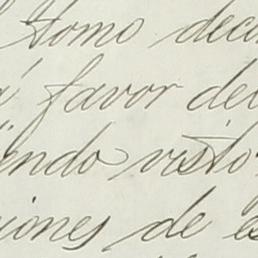 Homo deci
á favor del
iendo visto
iones de es